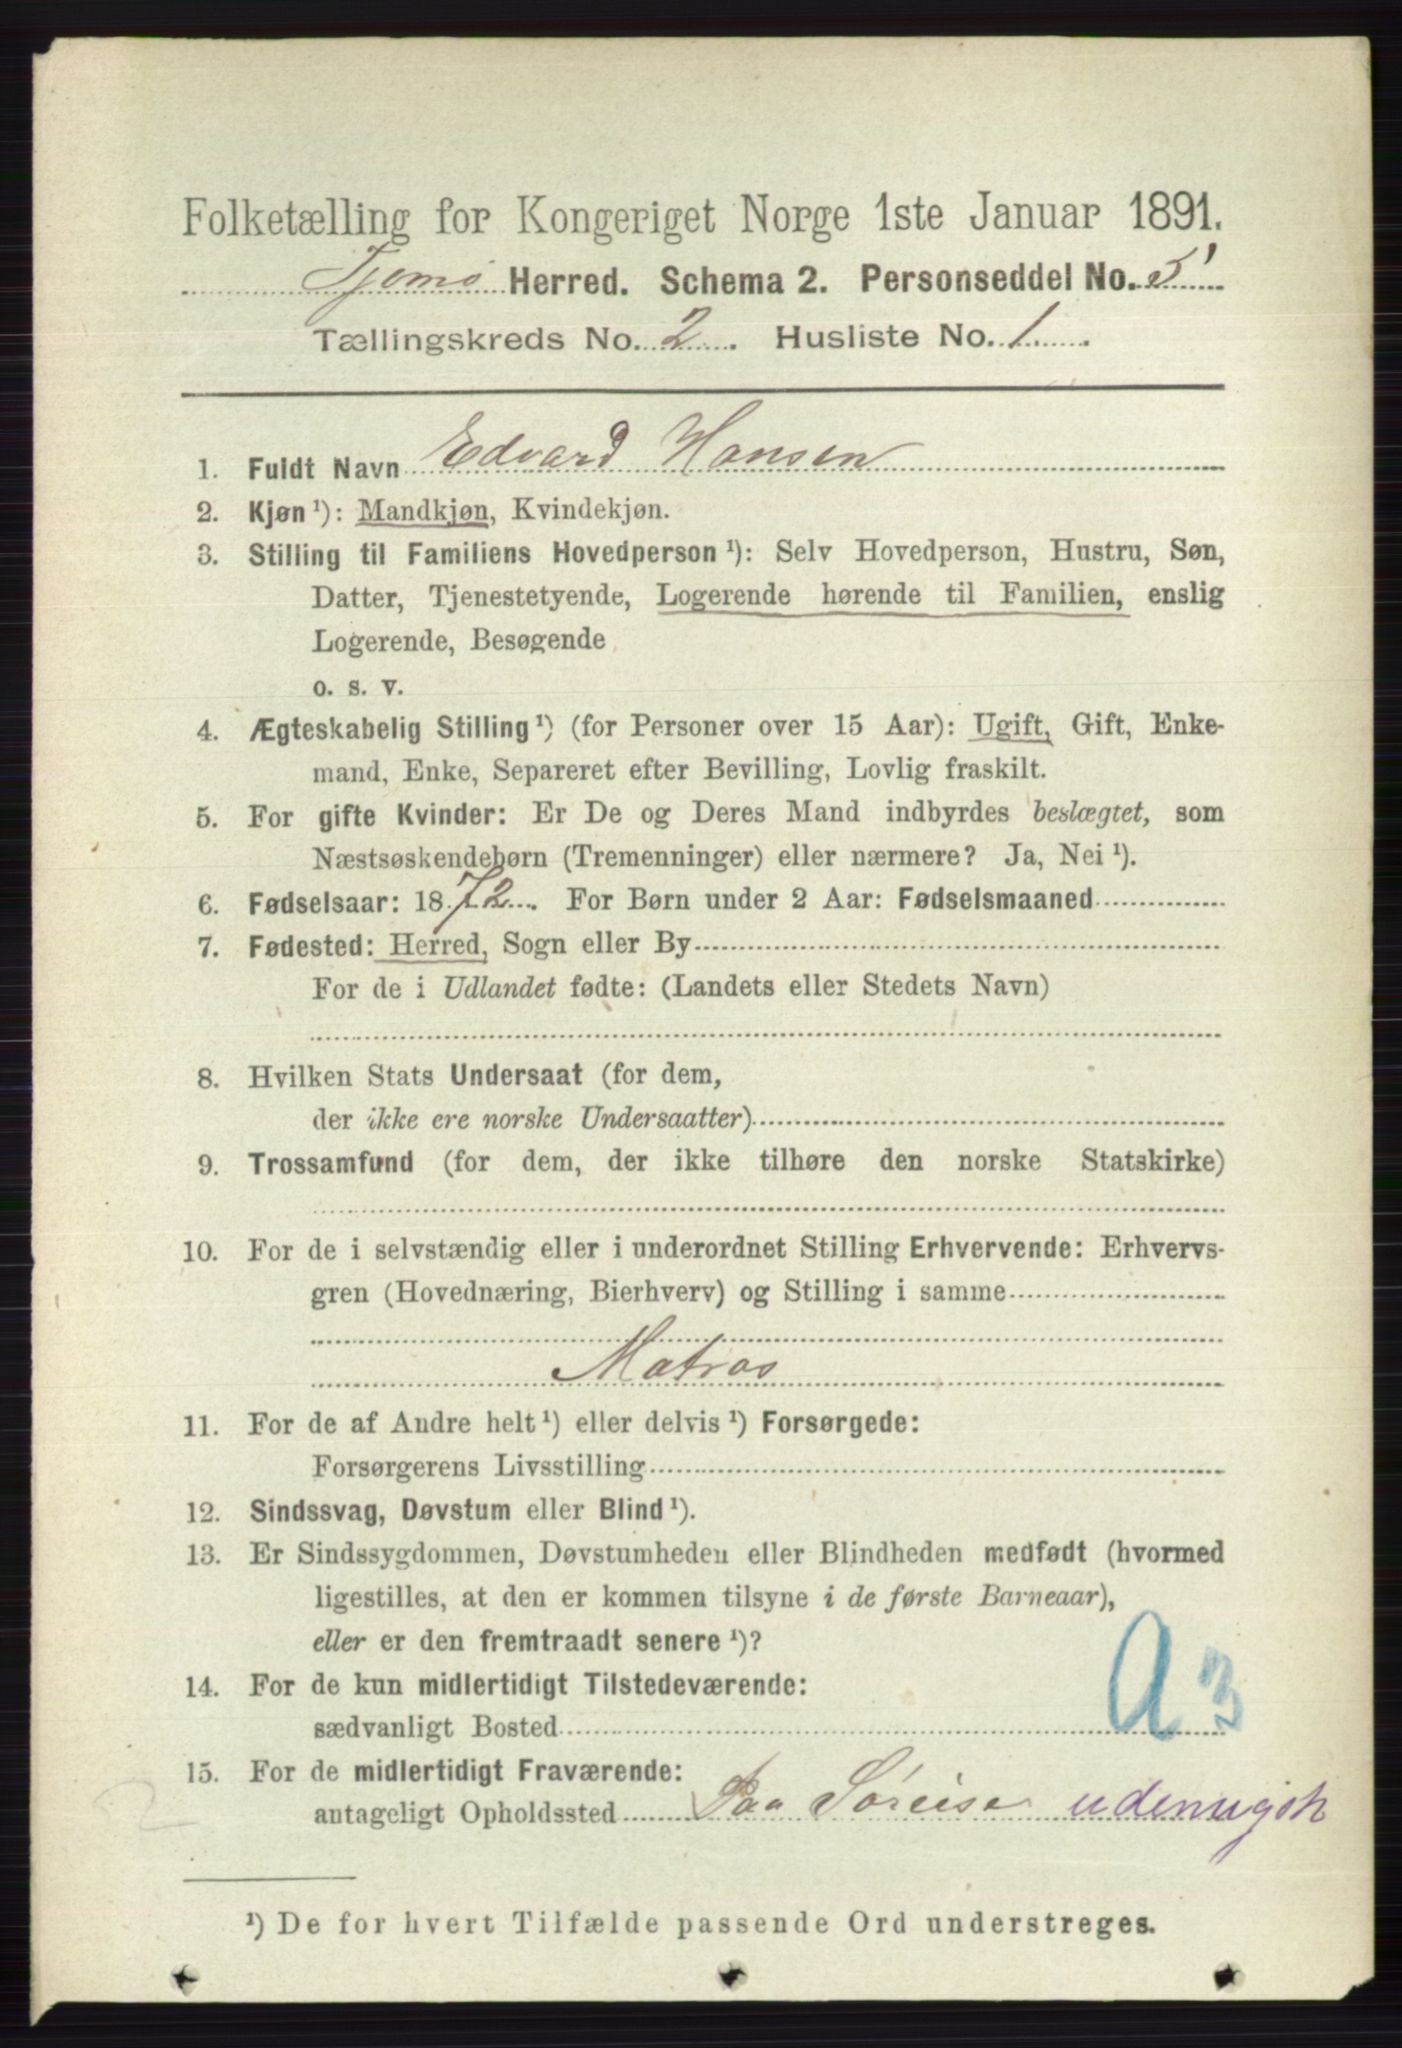 Folketælling for Kongeriget Norge 1ste Januar 1891.
Tjømø Herred. Schema 2. Personseddel No. 5
Tællingskreds No. 2. Husliste No. 1
1. Fuldt Navn Edvard Hansen
2. Kjøn ¹): Mandkjøn, Kvindekjøn.
3. Stilling til Familiens Hovedperson ¹): Selv Hovedperson, Hustru, Søn,
Datter, Tjenestetyende, Logerende hørende til Familien, enslig
Logerende, Besøgende
o. s. v.
4. Ægteskabelig Stilling ¹) (for Personer over 15 Aar): Ugift, Gift, Enke-
mand, Enke, Separeret efter Bevilling, Lovlig fraskilt.
5. For gifte Kvinder: Er De og Deres Mand indbyrdes beslægtet, som
Næstsøskendebørn (Tremenninger) eller nærmere? Ja, Nei ¹).
6. Fødselsaar: 1872. For Børn under 2 Aar: Fødselsmaaned
7. Fødested: Herred, Sogn eller By
For de i Udlandet fødte: (Landets eller Stedets Navn)
8. Hvilken Stats Undersaat (for dem,
der ikke ere norske Undersaatter)
9. Trossamfund (for dem, der ikke tilhøre den norske Statskirke)
10. For de i selvstændig eller i underordnet Stilling Erhvervende: Erhvervs-
gren (Hovednæring, Bierhverv) og Stilling i samme
Matros
11. For de af Andre helt ¹) eller delvis ¹) Forsørgede:
Forsørgerens Livsstilling
12. Sindssvag, Døvstum eller Blind ¹).
13. Er Sindssygdommen, Døvstumheden eller Blindheden medfødt (hvormed
ligestilles, at den er kommen tilsyne i de første Barneaar),
eller er den fremtraadt senere ¹)?
14. For de kun midlertidigt Tilstedeværende:
sædvanligt Bosted
a 3
15. For de midlertidigt Fraværende:
antageligt Opholdssted Paa Søreise udenrigsk
2
¹) De for hvert Tilfælde passende Ord understreges.